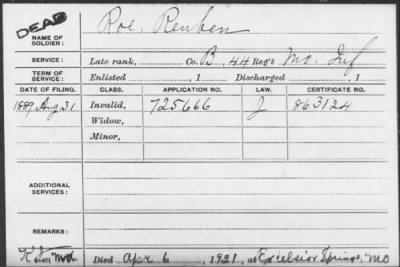 DEAD
Roe, Reuben
NAME OF SOLDIER:
SERVICE: Late rank, Co. B, 44 Reg't Mo. Inf
TERM OF SERVICE: Enlisted , 1 Discharged , 1
DATE OF FILING. CLASS. APPLICATION NO. LAW. CERTIFICATE NO.
1889 Aug 31 Invalid, 725666 J 863124
Widow,
Minor,
ADDITIONAL SERVICES:
REMARKS:
Died Apr 6, 1921, at Excelsior Springs, Mo